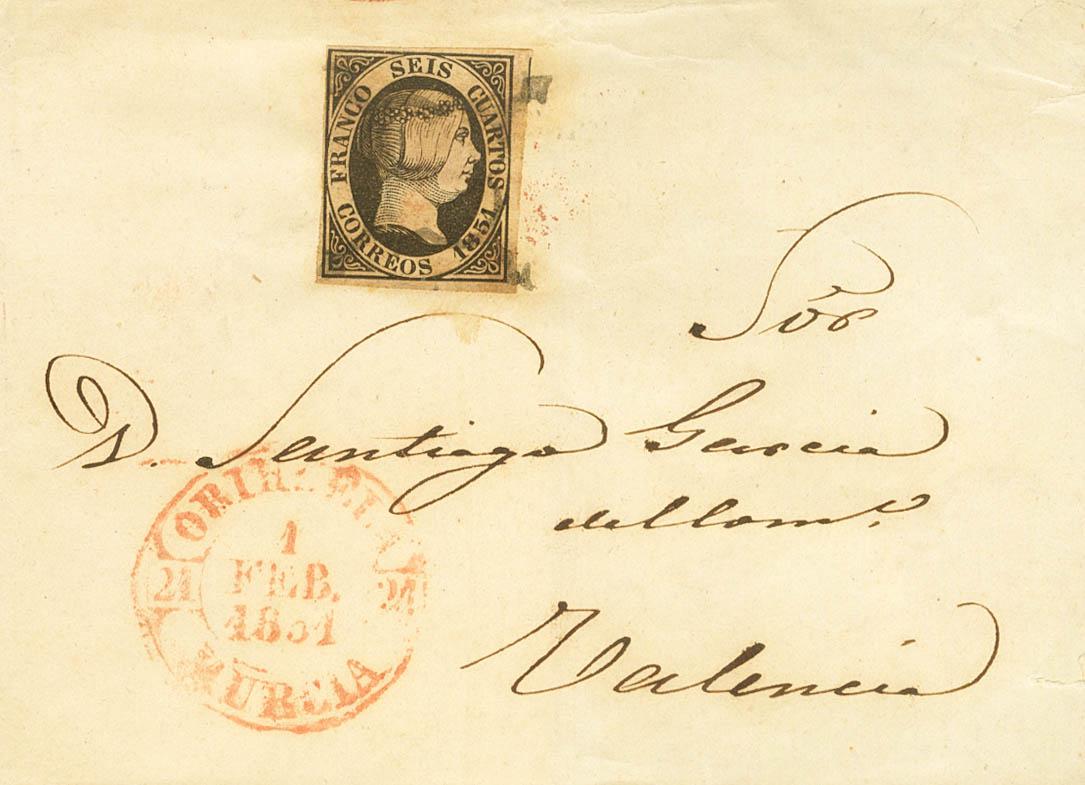 FRANCO SEIS CUARTOS
CORREOS 1851
Sor
D. Santiago Garcia
del Com.o
Valencia
ORIHUELA
1
FEB.
1851
21 21
MURCIA